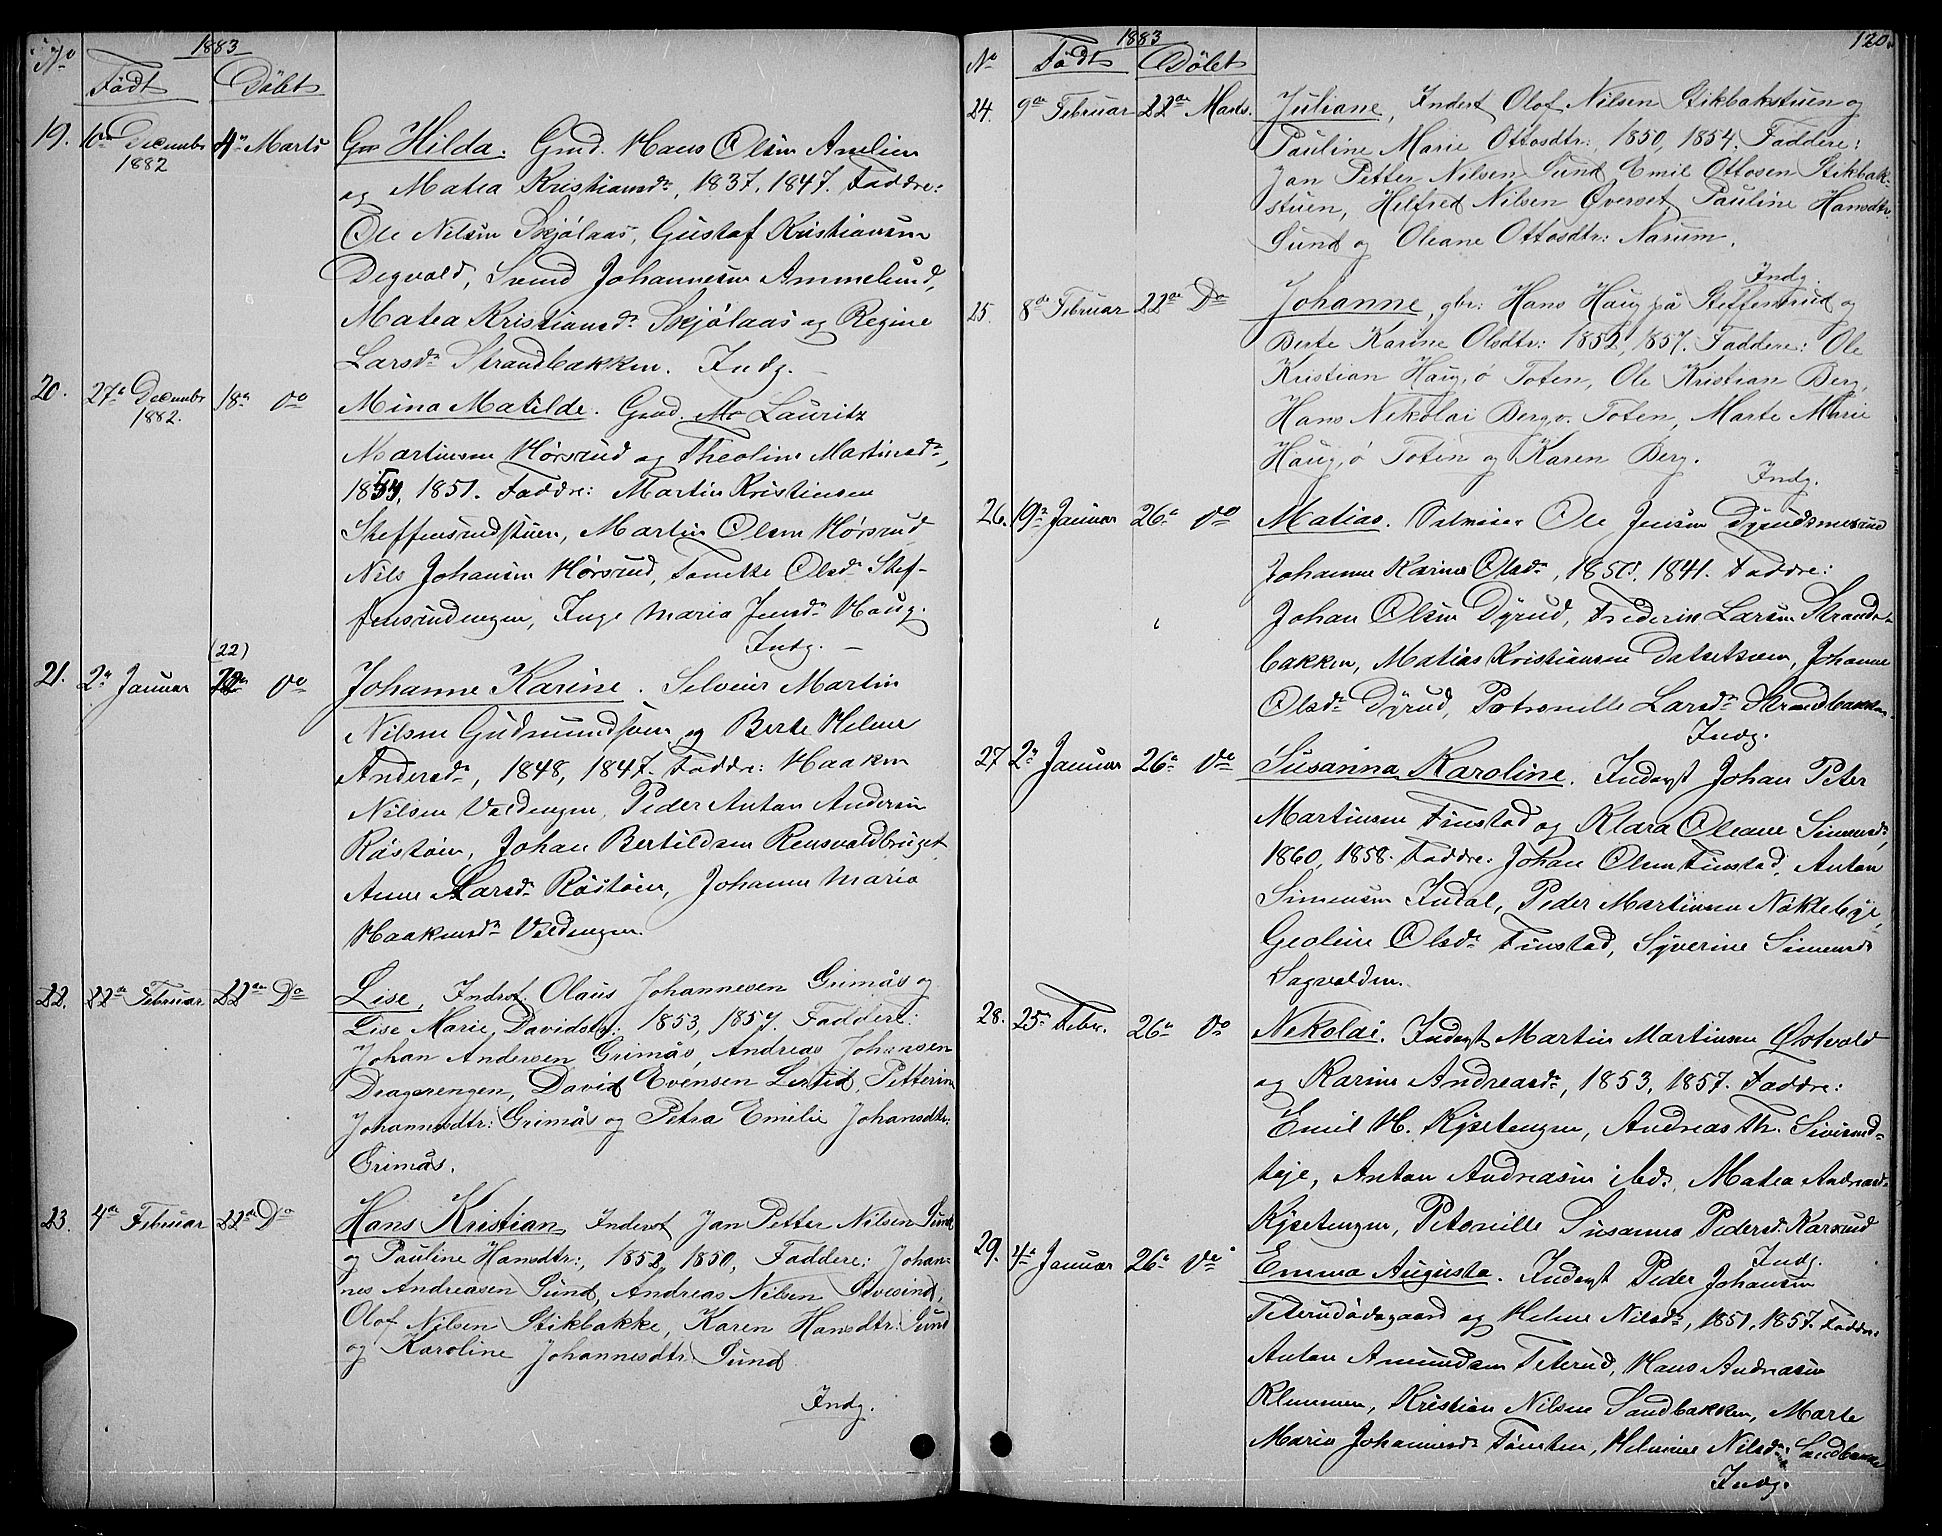 No 1883
Født Døbt
19. 10de Decembr 1882 4de Marts Hilda. Gmd. Hans Olsen Amlien
og Matea Kristiansdr, 1837, 1847. Faddre:
Ole Nilsen Skjølaas, Gustaf Kristiansen
Degvold, Svend Johannesen Ammelund,
Matea Kristiansdr Skjølaas og Regine
Larsdr Strandbakken. Indg. –
20. 27de Decembr 1882. 18de Do Mina Matilde. Gmd. Lauritz
Martinsen Hørsrud og Theoline Martinsdr,
1854, 1851. Faddre: Martin Kristiansen
Steffensrudstuen, Martin Olsen Hørsrud,
Nils Johansen Hørsrud, Olsdr Stef-
fensrudengen, Inge Maria Jensdr Haug.
Indg. –
(22)
21. 2de Januar Do Johanne Karine. Selveier Martin
Nilsen og Berte Helene
Andersdr, 1848, 1847. Faddre: Haaken
Nilsen Valdengen, Peder Anton Andersen
Røstøen, Johan Bertildsen
Anne Larsdr Røstøen, Johanne Maria
Haakensdr Valdengen.
22. 22de Februar 22de Do Lise, Inderst Olaus Johannesen Grimås og
Lise Marie Davidsdtr: 1853, 1857. Faddere:
Johan Andersen Grimås, Andreas Johansen
Dragerengen, David Evensen Petterine
Johannesdtr: Grimås og Petra Emilie Johansdtr:
Grimås.
23. 4de Februar 22de Do Hans Kristian, Inderst Jan Petter Nilsen Sund
og Pauline Hansdtr:, 1852, 1850, Faddere: Johan-
nes Andreasen Sund, Andreas Nilsen
Olof Nilsen Stikbakke, Karen Hansdtr: Sund
og Karoline Johannesdtr. Sund
Indg.
120.
No 1883
Født Døbt
24. 9de Februar 22de Marts. Juliane, Inderst Olof Nilsen Stikbakstuen og
Pauline Marie Ottosdtr:, 1850, 1854. Faddere:
Jan Petter Nilsen Sund, Emil Ottosen Stikbak-
stuen, Helfred Nilsen Øverset, Pauline Hansdtr.
Sund og Oleane Ottosdtr: Narum.
Indg.
25. 8de Februar 22de Do Johanne, gbr: Hans Haug på Steffensrud og
Berte Karine Olsdtr: 1852, 1857. Faddere: Ole
Kristian Haug, ø Toten, Ole Kristian Berg,
Hans Nekolai Berg, ø. Toten, Marte Marie
Haug, ø Toten og Karen Berg.
Indg.
26. 19de Januar 26de Do Matias. Selveier Ole Jensen
Johanne Karine Olsdr, 1850, 1841. Faddre:
Johan Olsen Dyrud, Frederik Larsen Strand-
bakken, Matias Kristiansen Johanne
Olsdr Dyrud, Petronille Larsdr Strandbakken.
Indg.
27 2de Januar 26de Do Susanna Karoline. Inderst Johan Peter
Martinsen Finstad og Klara Oleane Simensdr,
1860, 1858. Faddre: Johan Olsen Finstad, Anton
Simensen Indal, Peder Martinsen Nøkleby,
Geoline Olsdr Finstad, Syverine Simensdr
Sagvolden.
28. 25de Febr. 26de Do Nekolai. Inderst Martin Martinsen Østvold
og Karine Andreasdr, 1853, 1857. Faddre:
Emil H. Andreas Th. Sivesind-
teje, Anton Andreasen ibd. Matea Andreasdr
Petonille Susanna Pedersdr Karsrud
Indg.
29. 4de Januar 26de Do Emma Augusta. Inderst Peder Johansen
Teterudødegaard og Helene Nilsdr, 1851, 1857. Faddre:
Anton Amundsen Teterud, Hans Andreasen
Klemmen, Kristian Nilsen Sandbakken, Marte
Maria Johannesdr Tømten, Helmine Nilsdr Sandbakken
Indg.